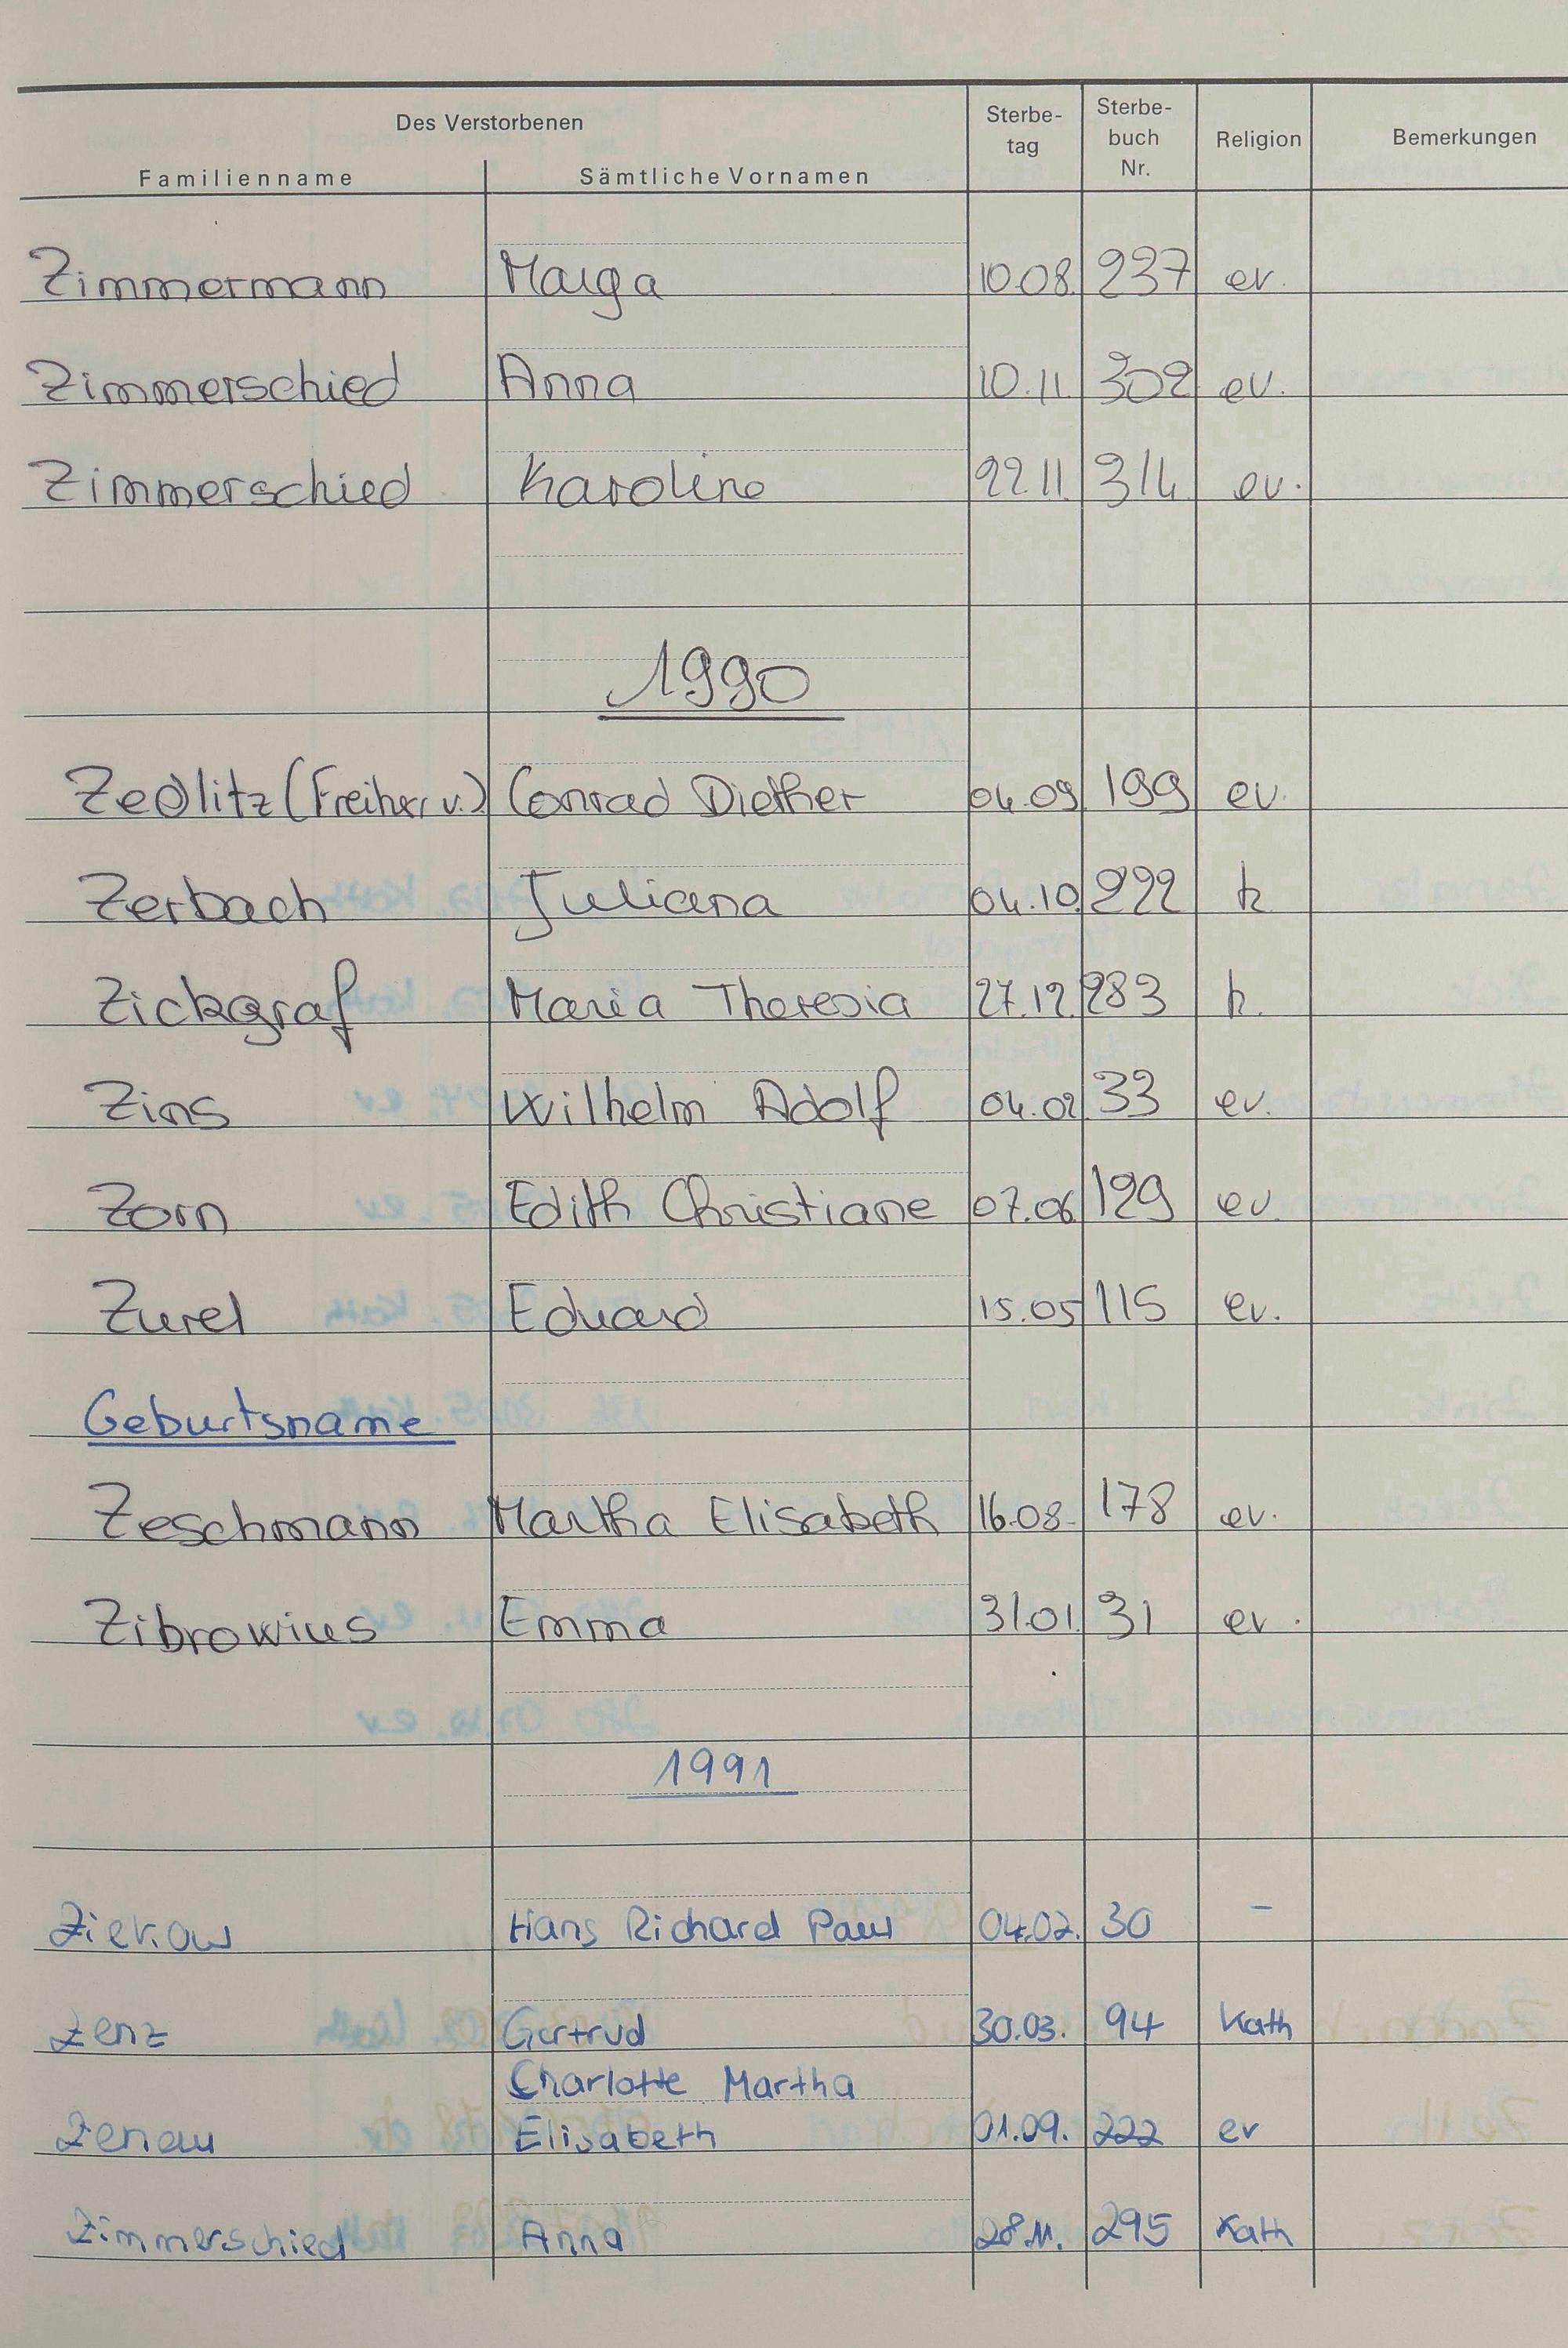 Des Verstorbenen
Familienname Sämtliche Vornamen Sterbe-tag Sterbe-buch Nr. Religion Bemerkungen
Zimmermann Marga 10.08. 237 ev.
Zimmerschied Anna 10.11. 302 ev.
Zimmerschied Karoline 22.11. 314 ev.
1990
Zedlitz (Freiherr v.) Conrad Diether 04.09. 199 ev.
Zerbach Juliana 04.10. 222 k.
Zickgraf Maria Theresia 27.12. 283 k.
Zins Wilhelm Adolf 04.02. 33 ev.
Zorn Edith Christiane 07.06. 129 ev.
Zurel Eduard 15.05 115 ev.
Geburtsname
Zeschmann Martha Elisabeth 16.08. 178 ev.
Zibrowius Emma 31.01. 31 ev.
1991
Ziekow Hans Richard Paul 04.02. 30 –
Zenz Gertrud 30.03. 94 Kath
Charlotte Martha
Elisabeth 01.09. 222 ev
Zimmerschied Anna 28.11. 295 Kath